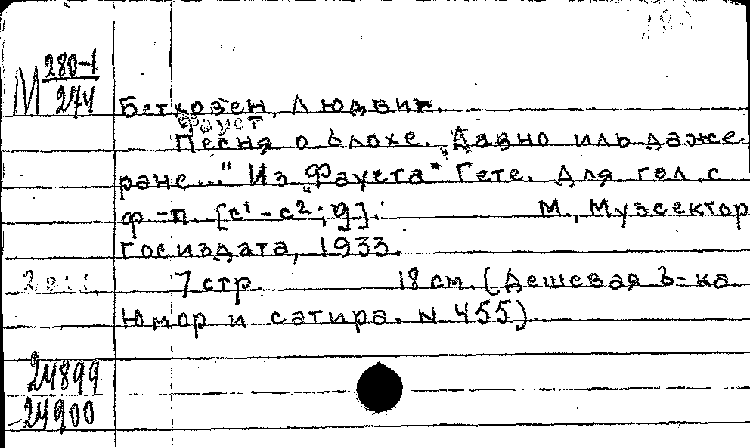 М 280-1
244
Бетховен, Людвиг.
Фауст
Песня о блохе. „Давно иль даже
ране..." Из „Фауста" Гете. Для гол. с
ф-п. [c¹-c²; g]. М., Музсектор
Госиздата, 1933.
2 экз. 7 стр. 18 см. (Дешевая б-ка
Юмор и сатира. N 455)
24899
-24900